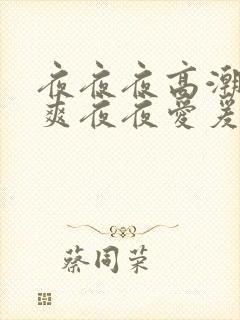 夜夜夜高潮
爽夜夜爱爰
蔡同荣